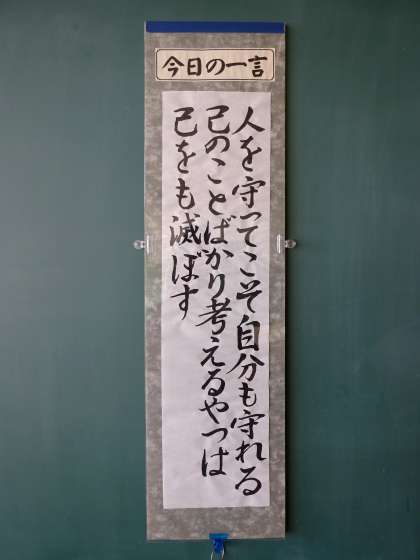 今日の一言
人を守ってこそ自分も守れる
己のことばかり考えるやつは
己をも滅ぼす